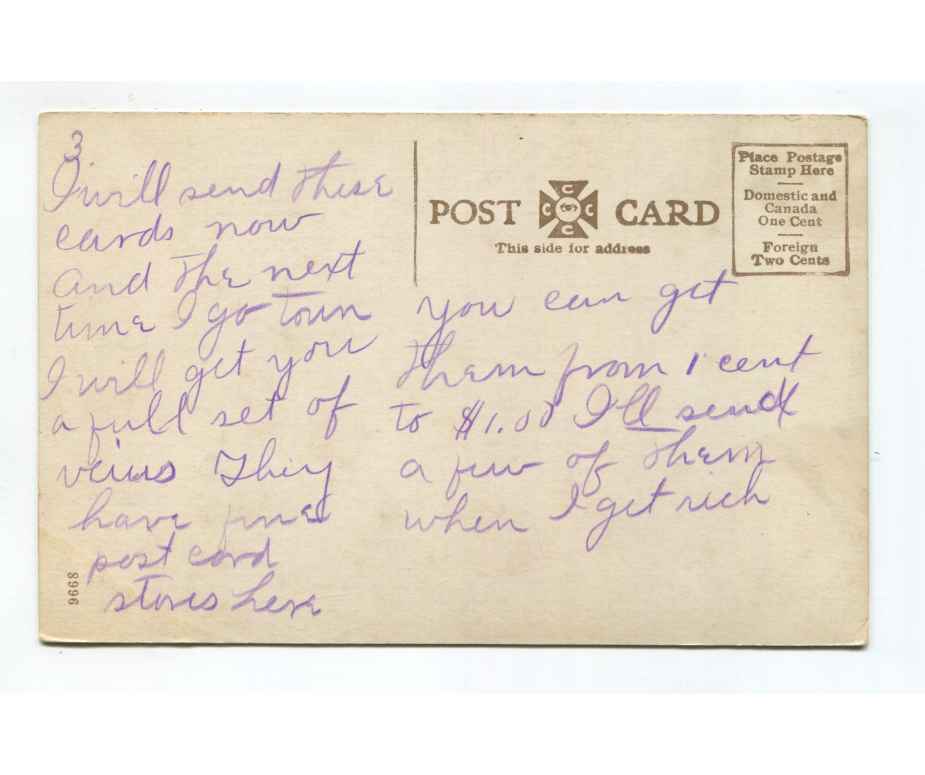 3
I will send these
cards now
and the next
time I go town
I will get you
a full set of
veius They
have fine
post card
stores here
you can get
them from 1 cent
to $1.00 I'll send
a few of them
when I get rich
POST CARD
C C C C
This side for address
Place Postage
Stamp Here
Domestic and
Canada
One Cent
Foreign
Two Cents
9668